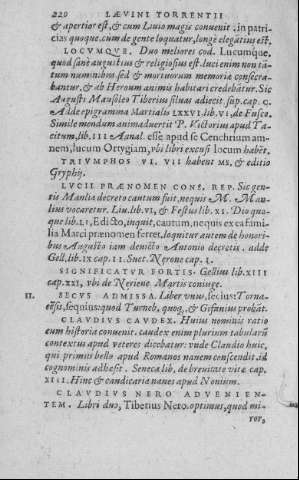 220 LÆVINI TORRENTII
& apertior est, & cum Liuio magis conuenit, in patri-
cias quoque, cum de gente loquatur, longè elegātius est.
LOCVMQVE. Duo meliores cod. Lucumque,
quod sanè augustius & religiosius est. luci enim non tā-
tum numinibus, sed & mortuorum memoriæ consecra-
bantur, & ab Heroum animis habitari credebātur. Sic
Augusti Mausoleo Tiberius siluas adiecit. sup. cap. C.
Adde epigramma Martialis LXXVI. lib. VI. de Fusco.
Simile mendum animaduertit P. Victorius apud Ta-
citum, lib. III Annal. esse apud se Cenchrium am-
nem, lucum Ortygiam, vbi libri excusi locum habēt.
TRIVMPHOS VI. VII habent MS. & editio
Gryphij.
LVCII PRÆNOMEN CONS. REP. Sic gen-
tis Manliæ decreto cautum fuit, nequis M. Man-
lius vocaretur. Liu. lib. VI, & Festus lib. XI. Dio quo-
que lib. LI, Edicto, inquit, cautum, nequis ex ea fami-
lia Marci prænomen ferret, loquitur autem de honori-
bus Augusto iam deuicto Antonio decretis. adde
Gell. lib. IX cap. II. Suet. Nerone cap. I.
SIGNIFICATVR FORTIS. Gellius lib. XIII
cap. XXI, vbi de Neriene Martis coniuge.
II. SECVS ADMISSA. Liber vnus, secius: Torna-
ēsis, sequius: quod Turneb. quoq. & Gifanius probāt.
CLAVDIVS CAVDEX. Huius nominis ratio
cum historia conuenit. caudex enim plurium tabularū
contextus apud veteres dicebatur: vnde Claudio huic,
qui primus bello apud Romanos nauem conscendit, id
cognominis adhæsit. Seneca lib. de breuitate vitæ cap.
XIII. Hinc & caudicariæ naues apud Nonium.
CLAVDIVS NERO ADVENIEN-
TEM. Libri duo, Tiberius Nero. optimus, quod mi-
ror,